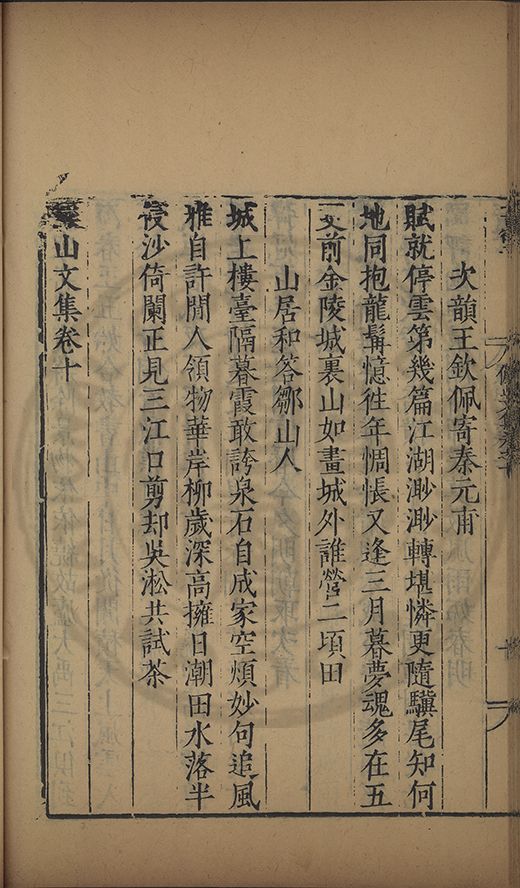 次韻王欽佩寄秦元甫
賦就停雲第幾篇江湖渺渺轉堪憐更隨驥尾知何
地同抱龍髯憶徃年惆悵又逢三月暮夢魂多在五
前金陵城裏山如畫城外誰營二頃田
山居和答鄒山人
城上樓臺隔暮霞敢誇泉石自成家空煩妙句追風
雅自許閒人領物華岸柳歲深高擁日潮田水落半
侵沙倚闌正見三江口剪却吳淞共試茶
山文集卷十